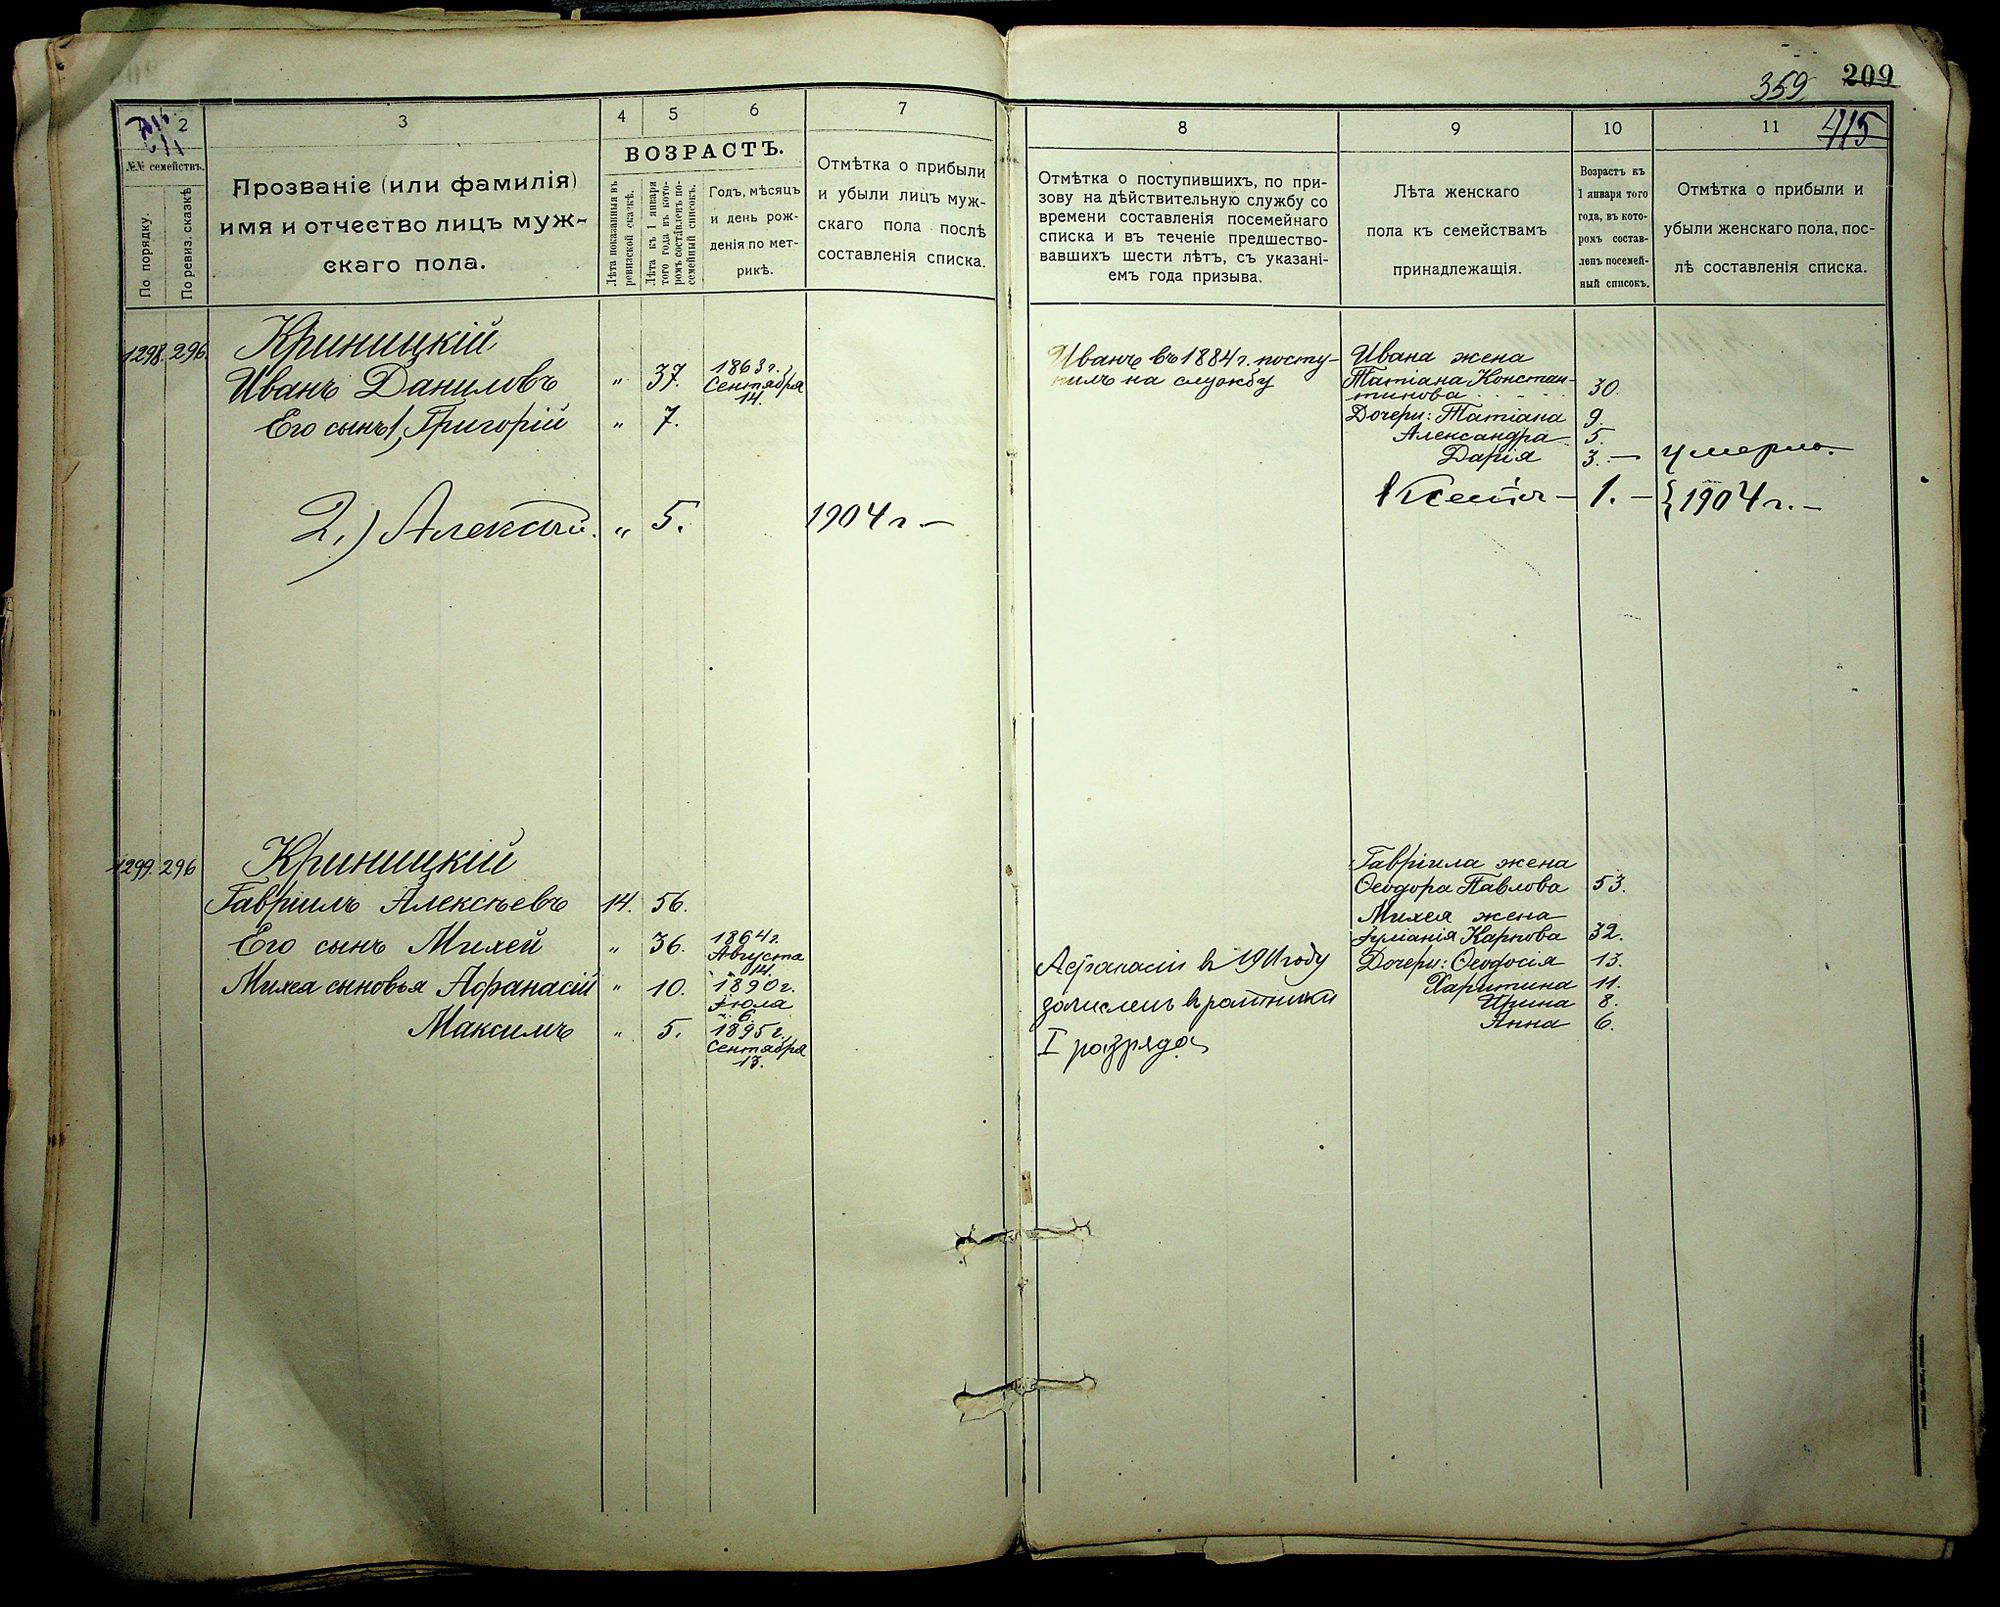 359 209
415
2 3 4 5 6 7
№№ семействъ.
По порядку.
По ревиз. сказкѣ
Прозваніе (или фамилія)
имя и отчество лицъ муж-
скаго пола.
ВОЗРАСТЪ.
Лѣта показанныя въ
ревизской сказкѣ.
Лѣта къ 1 января
того года въ кото-
ромъ составленъ по-
семейный списокъ.
Годъ, мѣсяцъ
и день рож-
денія по мет-
рикѣ.
Отмѣтка о прибыли
и убыли лицъ муж-
скаго пола послѣ
составленія списка.
1298. 296. Криницкій
Иванъ Даниловъ " 37. 1863 г.
Сентября
14.
Его сынъ 1, Григорій " 7.
2.) Алексѣй. " 5. 1904 г. —
1299. 296 Криницкій
Гавріилъ Алексѣевъ 14. 56.
Его сынъ Михей " 36. 1864 г.
Августа
14.
Михея сыновья Афанасій " 10. 1890 г.
Іюля
6.
Максимъ " 5. 1895 г.
Сентября
13.
8 9 10 11
Отмѣтка о поступившихъ, по при-
зову на дѣйствительную службу со
времени составленія посемейнаго
списка и въ теченіе предшество-
вавшихъ шести лѣтъ, съ указані-
емъ года призыва.
Лѣта женскаго
пола къ семействамъ
принадлежащія.
Возрастъ къ
1 января того
года, въ кото-
ромъ состав-
ленъ посемей-
ный списокъ.
Отмѣтка о прибыли и
убыли женскаго пола, пос-
лѣ составленія списка.
Иванъ въ 1884 г. посту-
пилъ на службу
Ивана жена
Татіана Констан-
тинова 30.
Дочери: Татіана 9.
Александра 5.
Дарія 3. — умерла.
Ксенія — 1. — 1904 г. —
Гавріила жена
Ѳеодора Павлова 53.
Михея жена
Іуліанія Карпова 32.
Дочери: Ѳеодосія 13.
Харитина 11.
Ирина 8.
Анна 6.
Афанасій в 1911 году
зачислен в ратники
I разряда